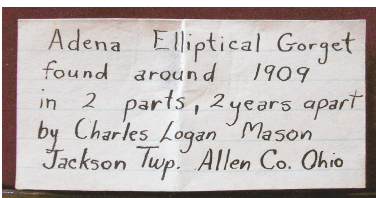 Adena Elliptical Gorget
found around 1909
in 2 parts, 2 years apart
by Charles Logan Mason
Jackson Twp. Allen Co. Ohio